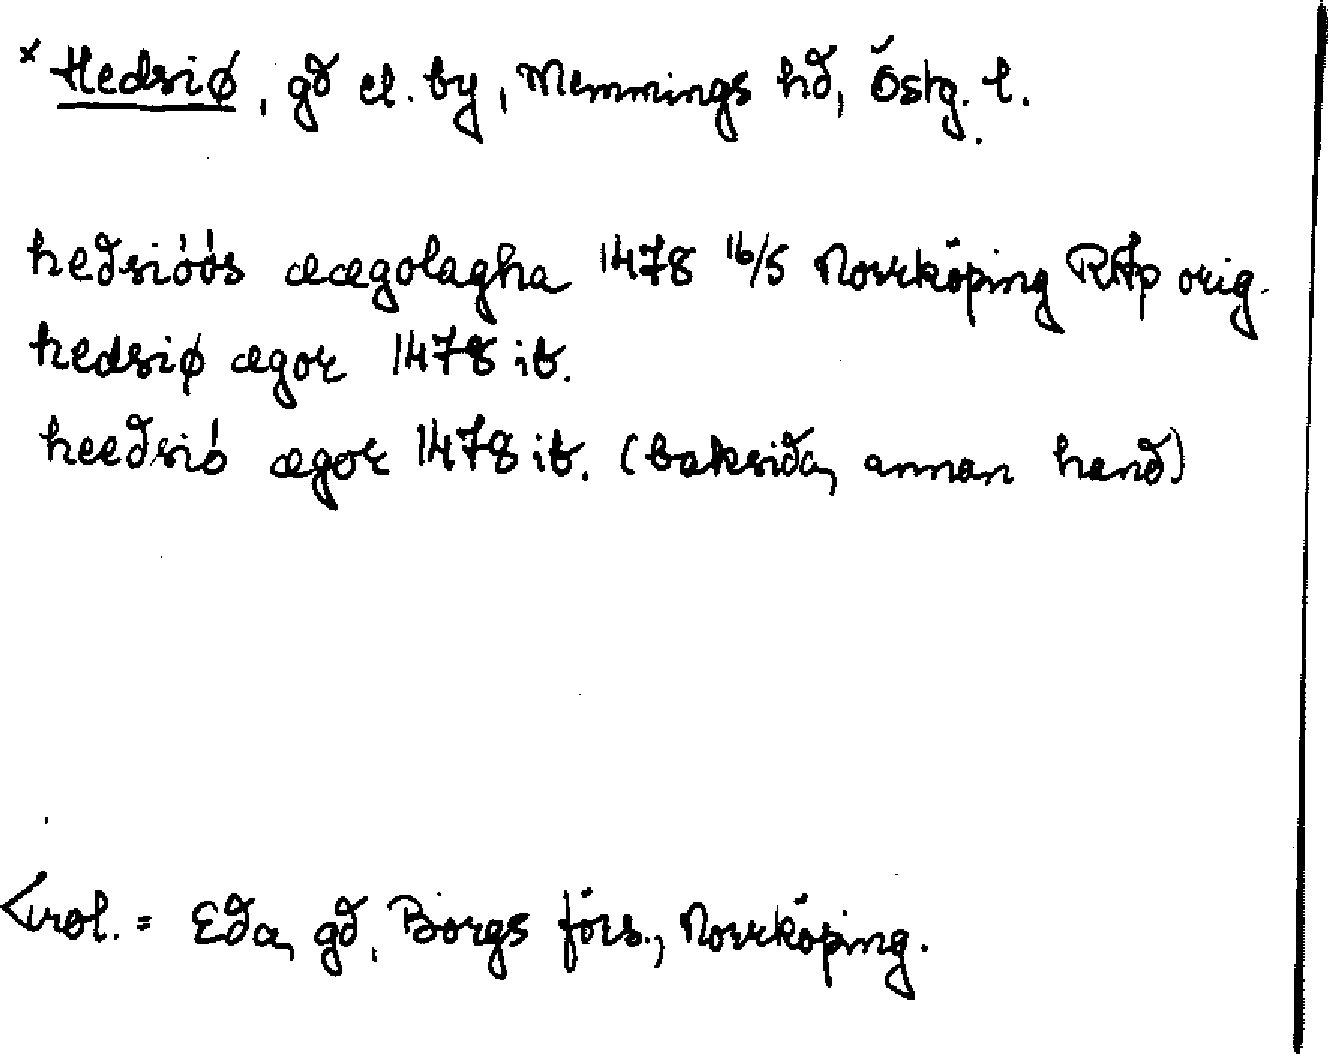 × Hedsiø, gd el. by, Memmings hd, Östg. l.
hedsióós æægolagha 1478 16/5 Norrköping RAp orig.
hedsiø ægor 1478 ib.
heedsió ægor 1478 ib. (baksida, annan hand)
Trol. = Eda, gd, Borgs förs., Norrköping.